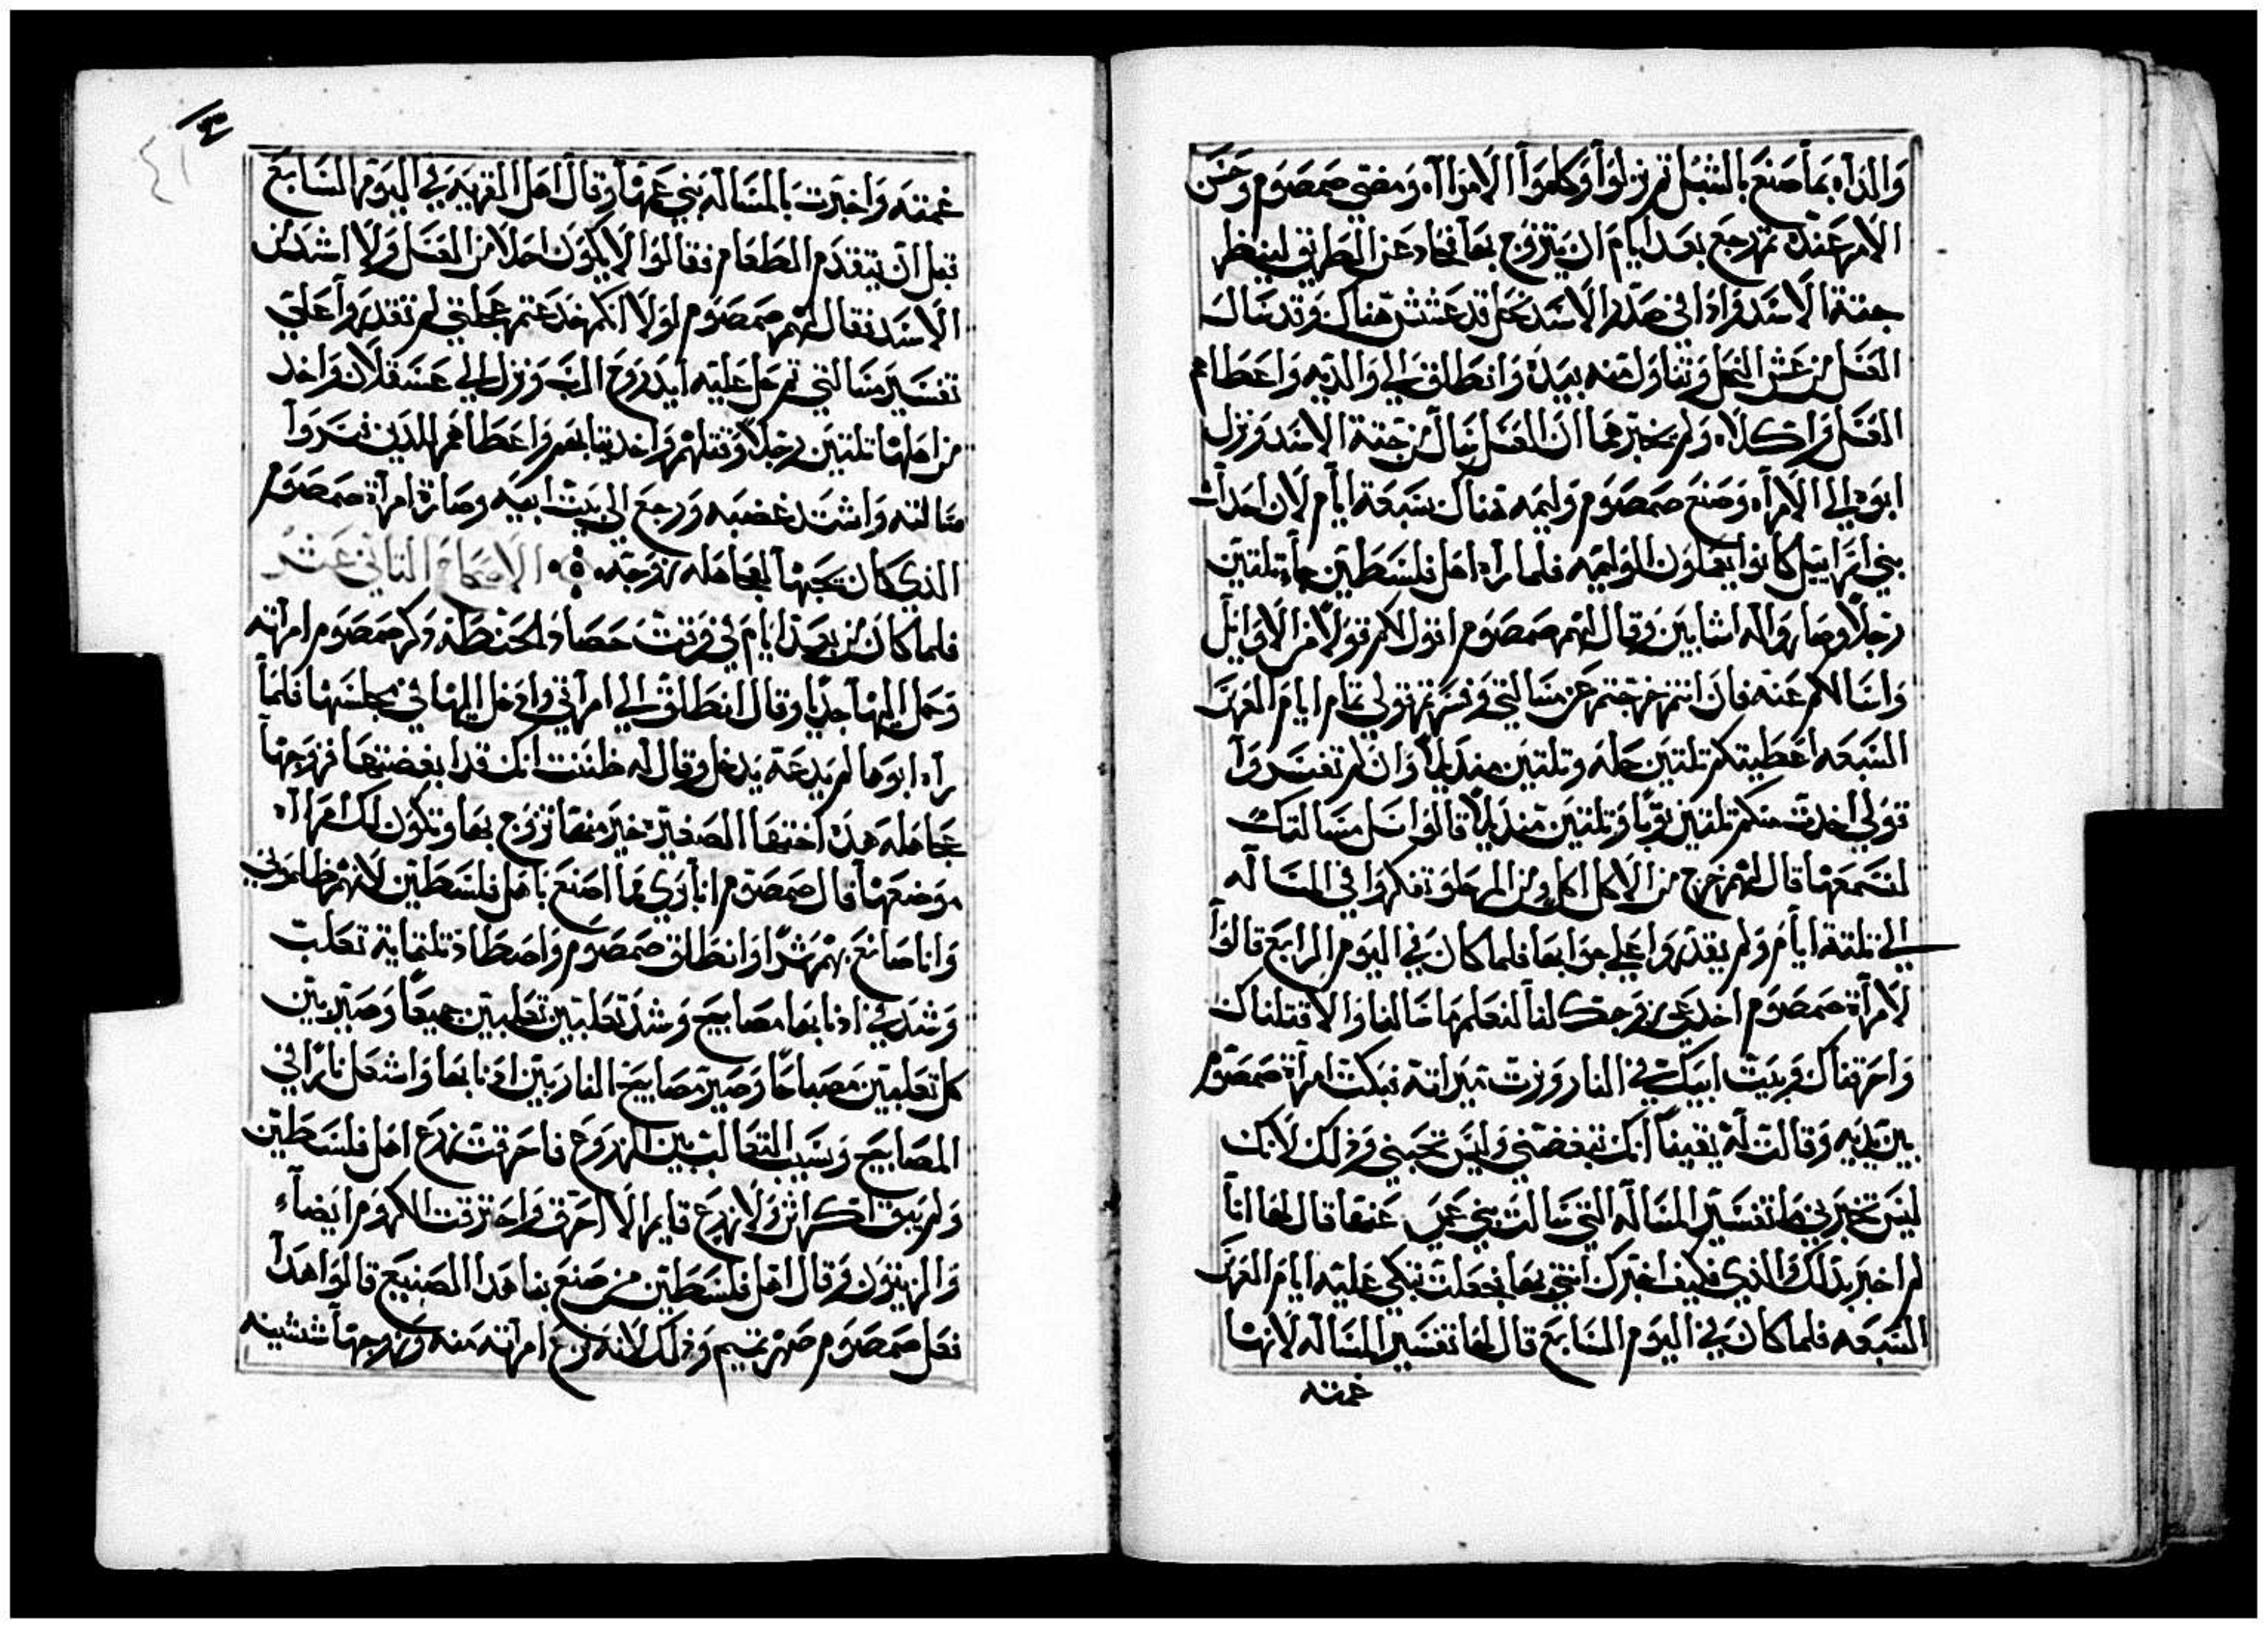 والداه بما صنع بالشبل ثم نزلوا وكلموا الامرااه ومضي صمصوم وحسن
الامر عنده ثم رجع بعد ايام ان يتزوج بها فحاد عن الطريق لينظر
جتة الاسد واذا في صدر الاسد نحل قد عشش هناك وقد سال
العسل من عش النحل وتناول منه بيده وانطلق الي والديه واعطاهم
العسل واكلاه ولم يخبرهما ان العسل سال من جتة الاسد ونزل
ابوه الي الامرااه وصنع صمصوم وليمه هناك سبعة ايام لان احدات
بني اسراييل كانوا يعملون الوليمه فلما راه اهل فلسطين جاه تلتين
رجلا وصاروا له اشابين وقال لهم صمصوم اقول لكم قولا من الاوايل
واسالكم عنه فان انتم خرجتم عن مسالتي وفسرتم قولي تمام ايام العرس
السبعه اعطيتكم تلتين حله وتلتين منديلا وان لم تفسروا
قولي اخدت منكم تلتين توبا وتلتين منديلا قالوا نسل مسالتك
لنسمعها قال لهم خرج من الاكل اكل ومن المر حلو تفكروا في المساله
الي تلتة ايام ولم يقدروا علي جوابها فلما كان في اليوم الرابع قالوا
لامرآة صمصوم اخدعي زوجك لنا لنعلم ما سالنا والا قتلناك
واحرقناك وبيت ابيك في النار وزت ميراته فبكت امرآة صمصوم
بين يديه وقالت له يقينا انك تبغضني وليس تحبني وذلك لانك
ليس تخبرني بما تفسير المساله التي سالت بني عمي عنها قال لها انا
لم اخبر بدلك والدي فكيف اخبرك انتي بها فجعلت تبكي عليه ايام العرس
السبعه فلما كان في اليوم السابع قال لها تفسير المساله لانها
غمته
غمته واخبرت بالمساله بني عمها وقال اهل القريه في اليوم السابع
قبل ان يتقدم الطعام فقالوا لا يكون احلا من العسل ولا اشد من
الاسد فقال لهم صمصوم لولا انكم خدعتم عجلتي لم تقدروا علي
تفسير مسالتي ثم حل عليه ايد روح الرب ونزل الي عسقلان واخد
من اهلها تلتين رجلا وقتلهم واخد تيابهم واعطاهم للدين فسروا
مسالته واشتد غضبه ورجع الي بيت ابيه وصارة امرآة صمصوم
الذي كان يحبها لعجامله زوجته الاصحاح التاني عشر
فلما كان من بعد ايام في وقت حصاد الحنطه ذكر صمصوم امراته
وحمل اليها جديا وقال انطلق الي امراتي وادخل اليها في مجلسها فلما
راه ابوها لم يدعه يدخل وقال له ظننت انك قد ابغضتها فزوجها
عجامله هده اختها الصغيره خير منها تزوج بها وتكون لك امرااه
موضعها قال صمصوم انا ادري ما اصنع باهل فلسطين لانهم ظلموني
وانا صانع بهم شرا وانطلق صمصوم واصطاد تلتماية تعلب
وشد في ادنابها مصابيح وشد تعلبين تعلبين جميعا وصير بين
كل تعلبين مصباحا وصير مصابيح النار بين ادنابها واشعل نارا في
المصابيح وسيب التعالب بين الزروع فاحرقت زرع اهل فلسطين
ولم يبق اكداس ولا زرع قايم الا احرق واحترقت الكروم ايضاء
والزيتون وقال اهل فلسطين من صنع بنا هدا الصنيع قالوا هدا
فعل صمصوم صهر تميم وذلك لانه نزع امراته منه وزوجها شبينه